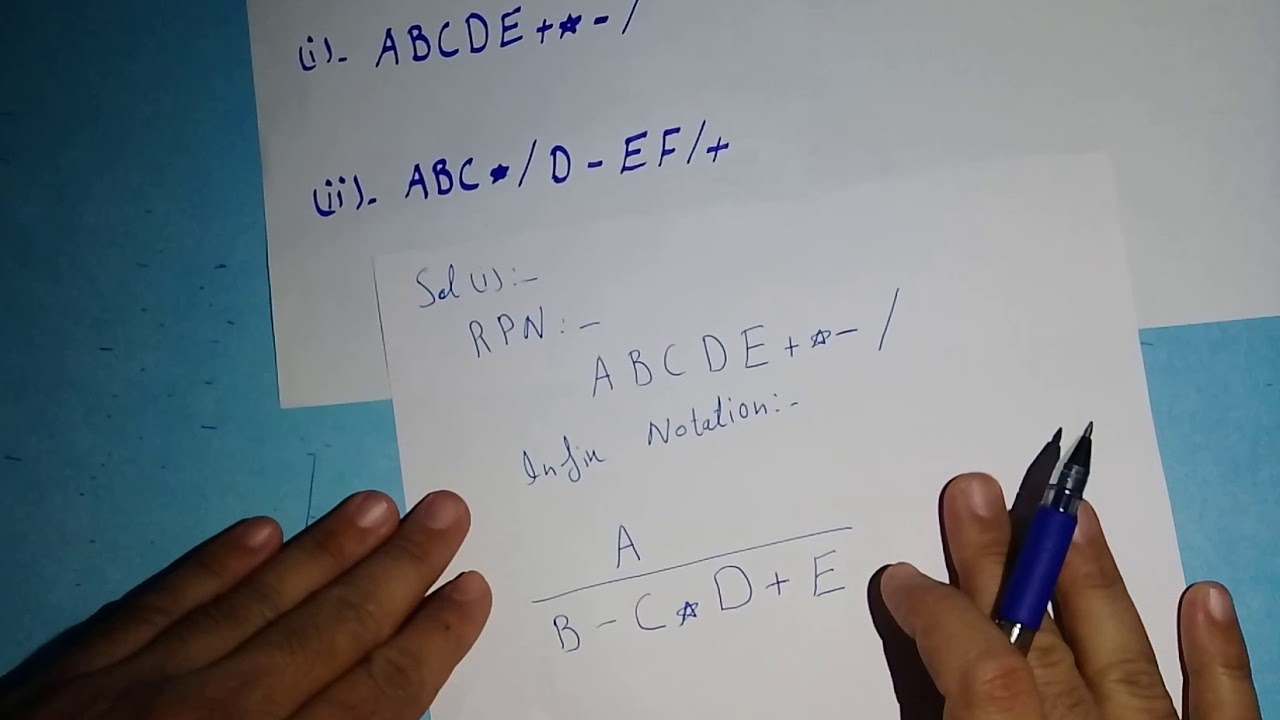 (i)- ABCDE+*-/
(ii)- ABC*/D-EF/+
Sol (i):-
RPN:-
ABCDE+*-/
Infix Notation:-
A
B-C*D+E